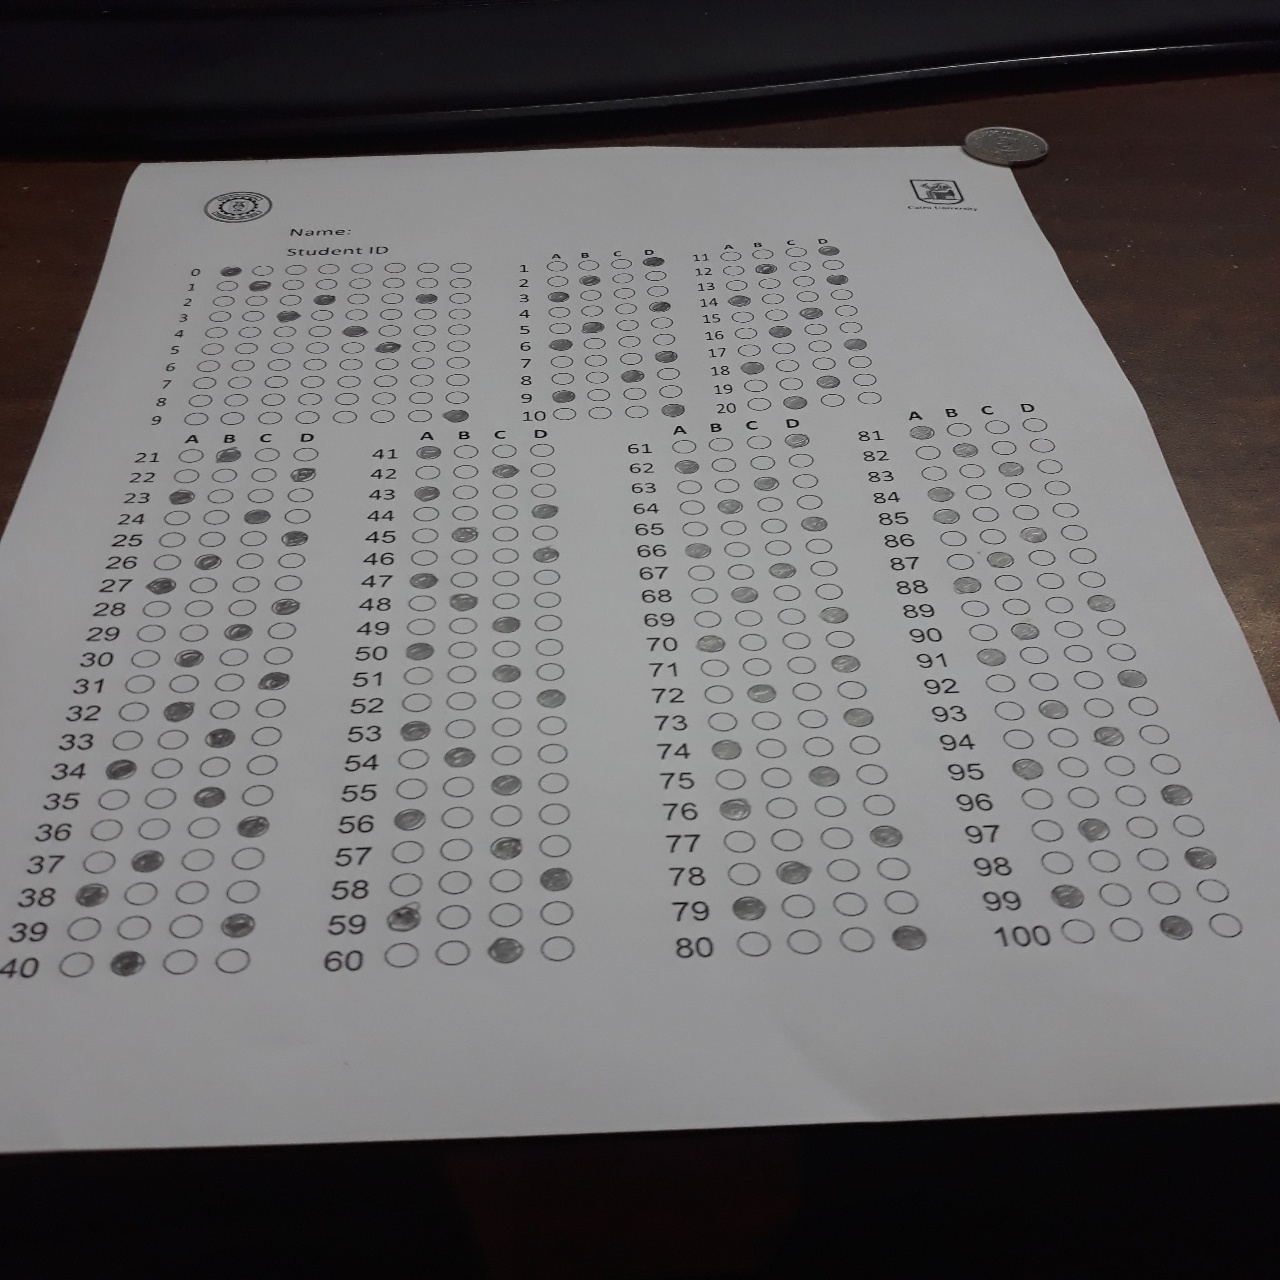 Cairo University
Name:
Student ID
0
1
2
3
4
5
6
7
8
9
A B C D
1
2
3
4
5
6
7
8
9
10
A B C D
11
12
13
14
15
16
17
18
19
20
A B C D
21
22
23
24
25
26
27
28
29
30
31
32
33
34
35
36
37
38
39
40
A B C D
41
42
43
44
45
46
47
48
49
50
51
52
53
54
55
56
57
58
59
60
A B C D
61
62
63
64
65
66
67
68
69
70
71
72
73
74
75
76
77
78
79
80
A B C D
81
82
83
84
85
86
87
88
89
90
91
92
93
94
95
96
97
98
99
100